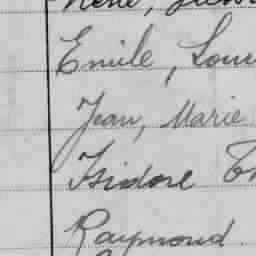 René,
Emile, Louis
Jean, Marie
Isidore
Raymond